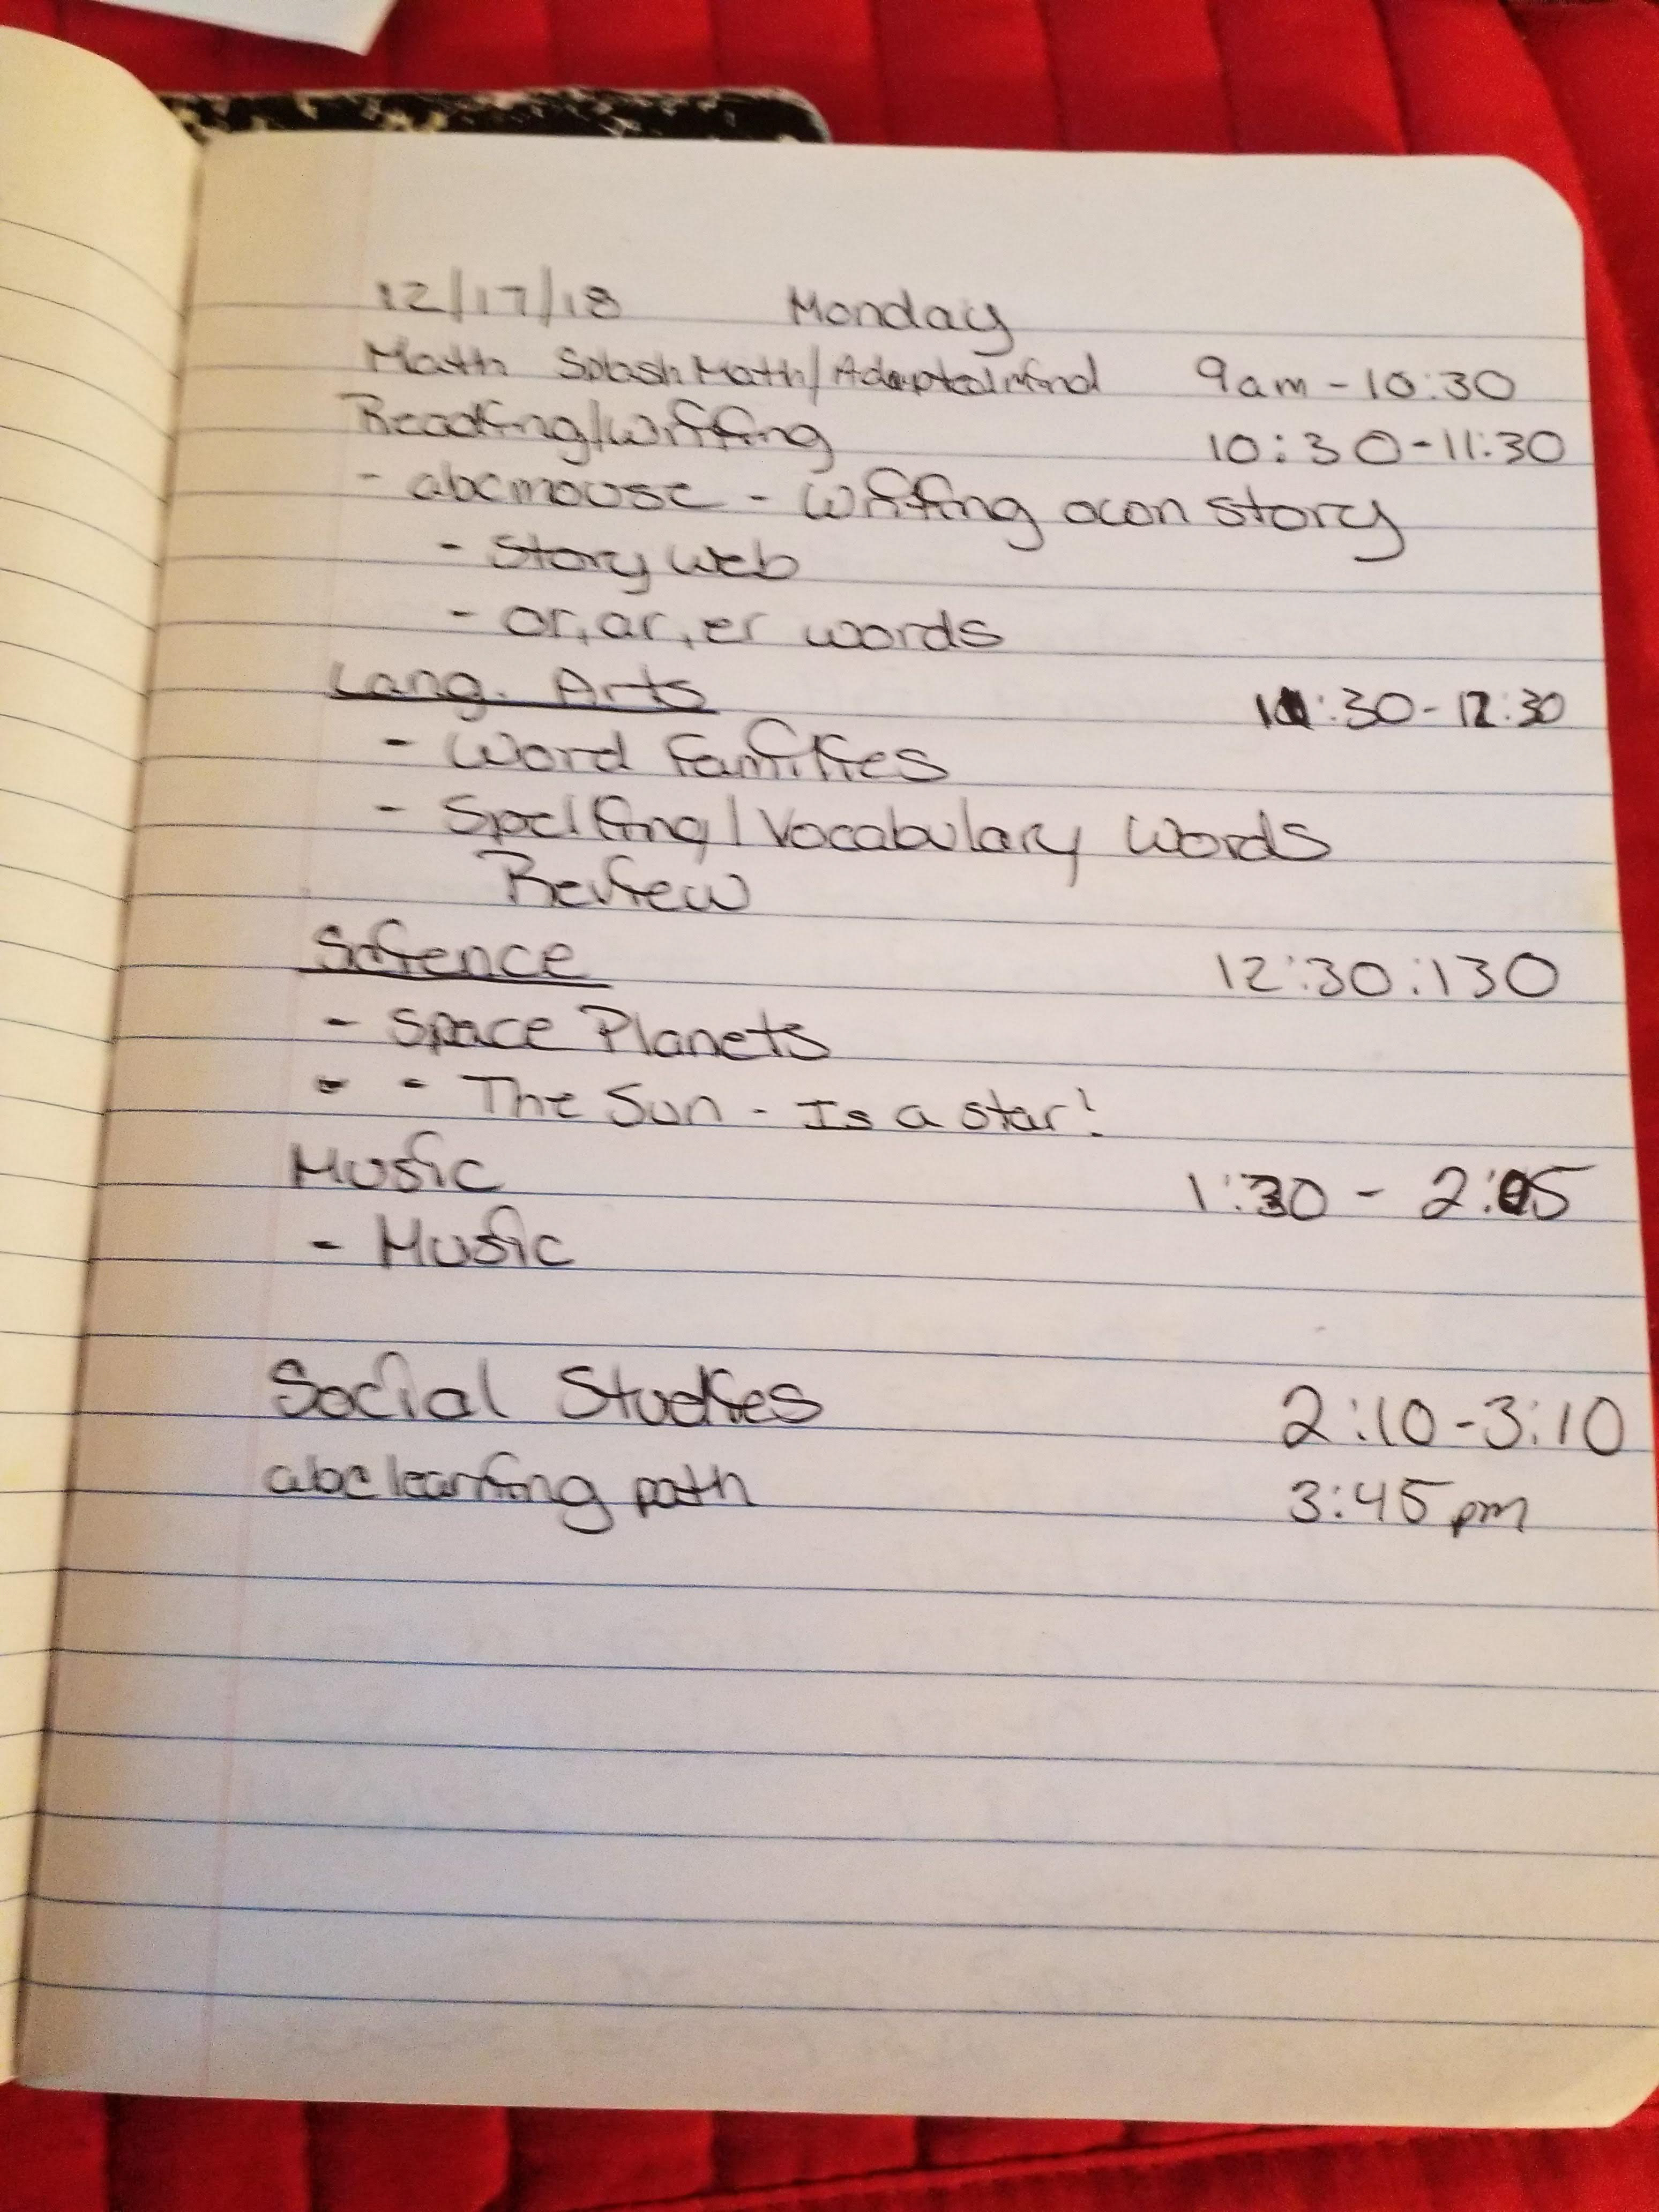 12/17/18 Monday
Math Splash Math/Adaptedmind 9am - 10:30
Reading/Writing 10:30-11:30
- abcmouse - Writing own story
- Story Web
- or, ar, er words
Lang. Arts 11:30-12:30
- Word Families
- Spelling/Vocabulary Words
Review
Science 12:30:130
- Space Planets
- - The Sun - Is a star!
Music 1:30 - 2:05
- Music
Social Studies 2:10-3:10
abc learning path 3:45pm